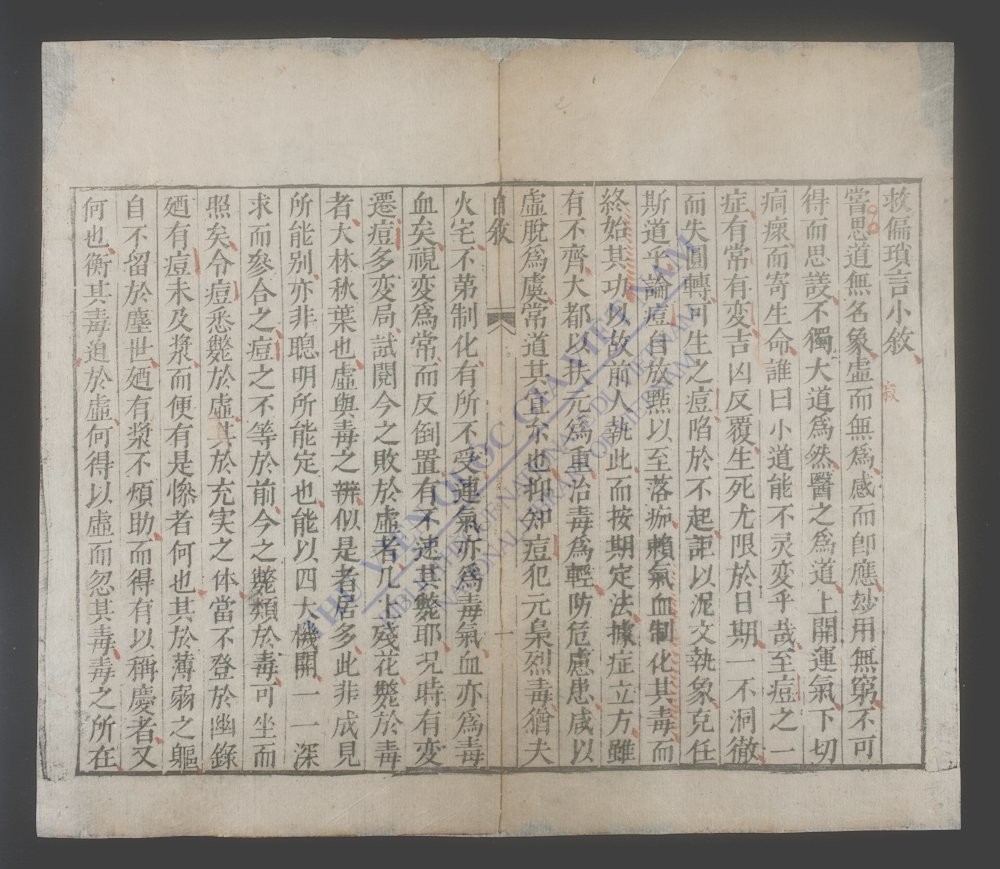 救偏瑣言小敘
嘗思道無名象虛而無爲感而卽應妙用無窮不可
得而思議不獨大道爲然醫之爲道上關運氣下切
痌瘝而寄生命誰曰小道能不灵变乎哉至痘之一
症有常有变吉凶反覆生死尤限於日期一不洞徹
而失圓轉可生之痘陷於不起詎以泥文執象克任
斯道乎論痘自放㸃以至落痂賴氣血制化其毒而
終始其功以故前人執此而按期定法據症立方雖
有不齊大都以扶元爲重治毒爲輕防危慮患咸以
虛脫爲虞常道其宜尔也抑知痘犯元梟烈毒猶夫
自敘
一
火宅不第制化有所不受連氣亦爲毒氣血亦爲毒
血矣視变爲常而反倒置有不速其斃耶况時有变
遷痘多变局試閱今之敗於虛者几上殘花斃於毒
者大林秋葉也虛與毒之辨似是者居多此非成見
所能别亦非聰明所能定也能以四大機關一一深
求而參合之痘之不等於前今之斃類於毒可坐而
照矣令痘悉斃於虛其於充实之体當不登於幽錄
廼有痘未及漿而便有是慘者何也其於薄弱之軀
自不留於塵世廼有漿不煩助而得有以稱慶者又
何也衡其毒迫於虛何得以虛而忽其毒毒之所在
寂
THƯ VIỆN QUỐC GIA VIỆT NAM
BIBLIOTHÈQUE NATIONALE DU VIETNAM
NATIONAL LIBRARY OF VIETNAM